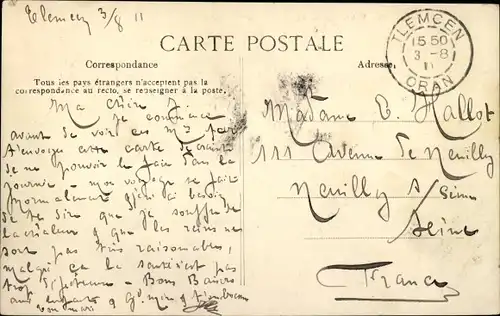 Tlemcen 3/8 11
CARTE POSTALE
Correspondance
Adresse
Tous les pays étrangers n'acceptent pas la
correspondance au recto, se renseigner à la poste.
TLEMCEN
15 50
3 - 8
11
ORAN
Ma Chère J.
je commence
avant de voir ces Ms par
t'envoyer cette carte
de ne pouvoir le faire dans la
journée - mon voyage se fait
normalement
te dire que je souffre de
la chaleur & que les reins ne
sont pas très raisonnables,
malgré ça la santé n'est pas
trop - Bons Baisers
aux enfants & Gd. mère & t'embrasse
ton mari
Madame E. Hallot
111 Avenue de Neuilly
Neuilly s/ Seine
Seine
France